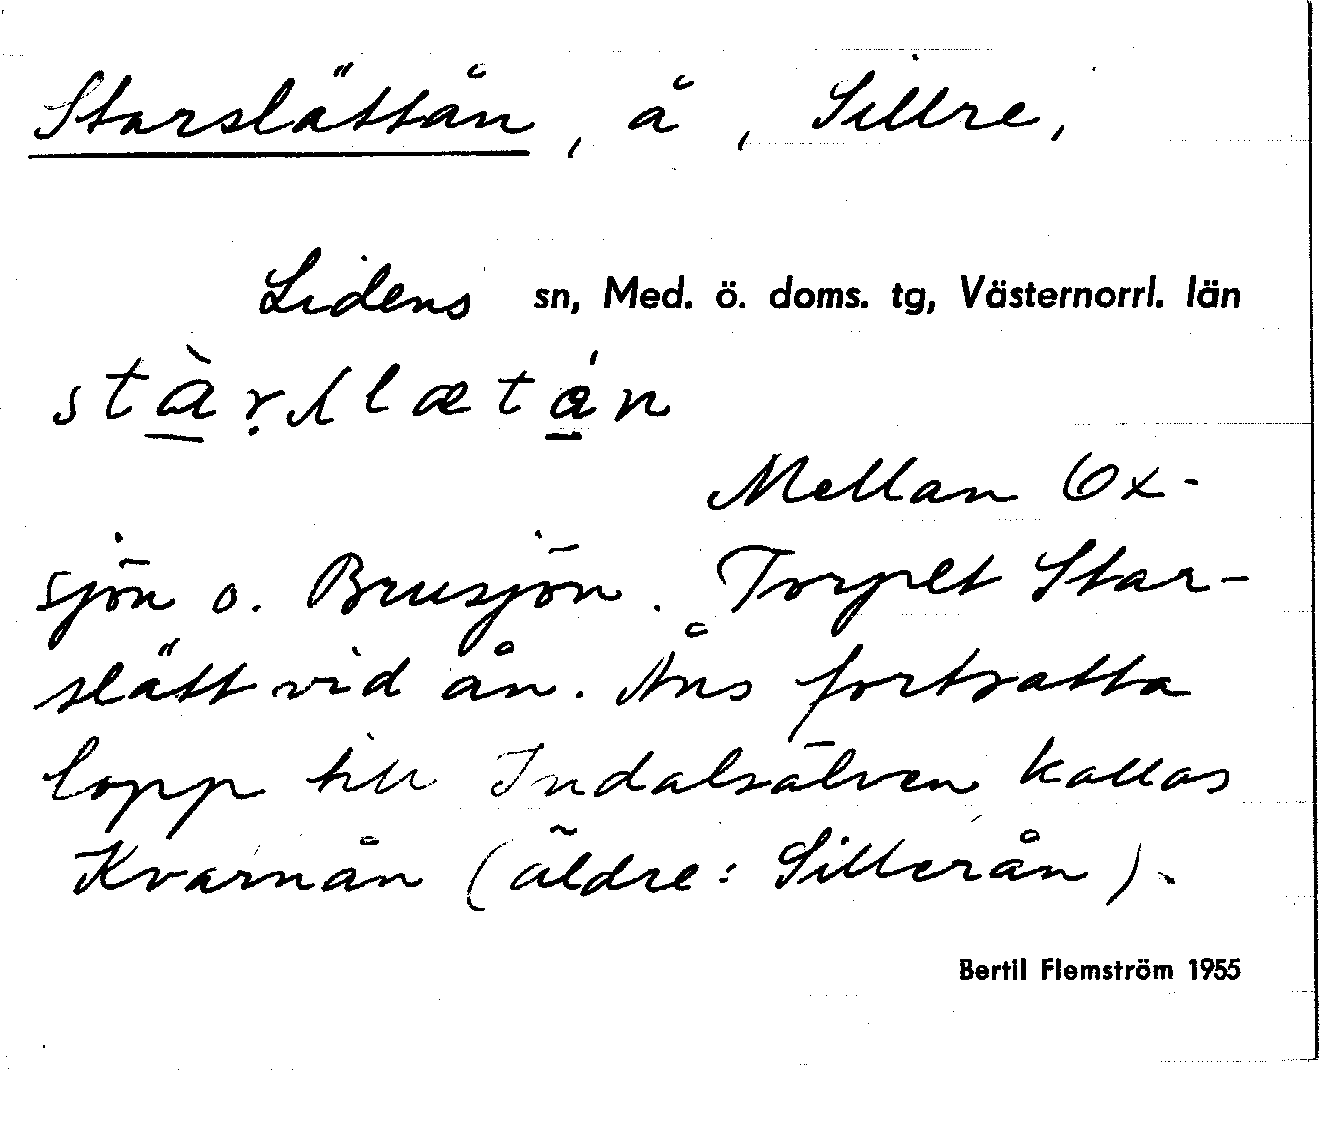 Starslättån, å, Sillre,
Lidens sn, Med. ö. doms. tg, Västernorrl. län
Mellan Ox-
sjön o. Brusjön. Torpet Star-
slätt vid ån. Åns fortsatta
lopp till Indalsälven kallas
Kvarnån (äldre: Sillerån).
Bertil Flemström 1955